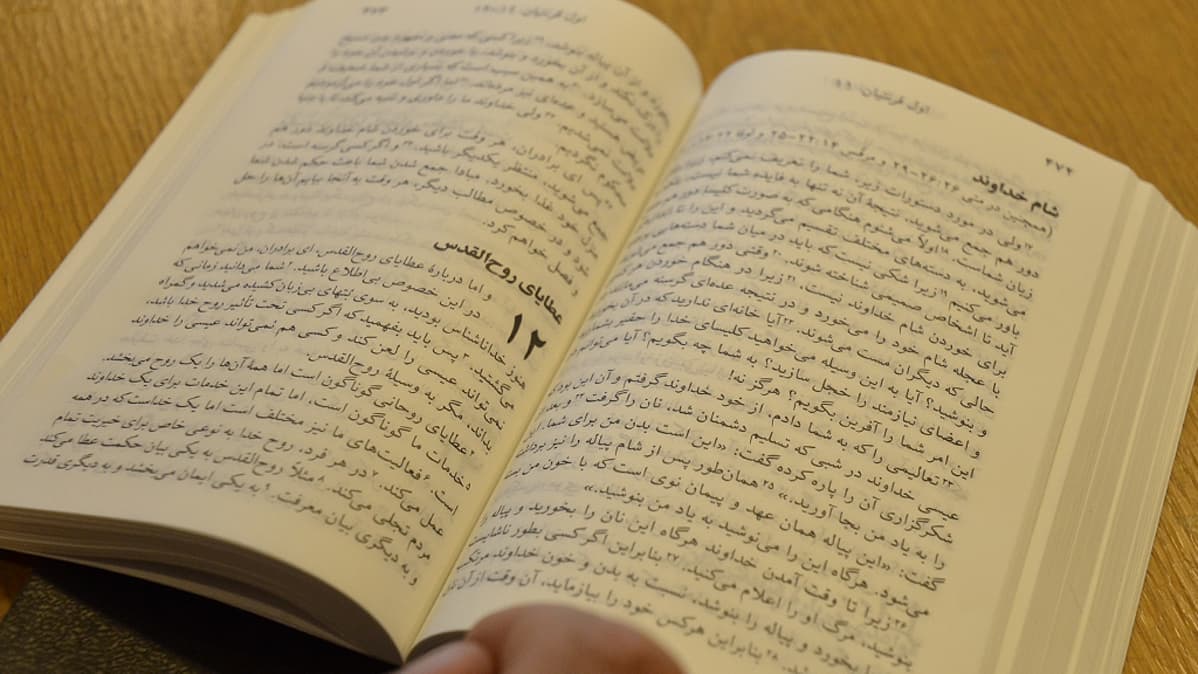 ۴۷۲
اول قرنتیان ۱۱
شام خداوند
(همچنین در متی ۲۶:۲۶-۲۹ و مرقس ۱۴:۲۲-۲۵ و لوقا ۲۲
۱۷ولی در مورد دستورات زیر، شما را تعریف نمی‌کنم،
دور هم جمع می‌شوید، نتیجهٔ آن نه تنها به فایده شما نیست،
زیان شماست. ۱۸اولاً می‌شنوم هنگامی‌که به صورت کلیسا دور هم
می‌شوید، به دسته‌های مختلف تقسیم می‌گردید و این را تا
باور می‌کنم ۱۹زیرا شکی نیست که باید در میان شما دسته‌ها
آید تا اشخاص صمیمی شناخته شوند. ۲۰وقتی دور هم جمع می‌شوید
برای خوردن شام خداوند نیست. ۲۱زیرا در هنگام خوردن هر
با عجله شام خود را می‌خورد و در نتیجه عده‌ای گرسنه می‌مانند
حالی که دیگران مست می‌شوند. ۲۲آیا خانه‌ای ندارید که در آن
و بنوشید؟ آیا به این وسیله می‌خواهید کلیسای خدا را حقیر بشمارید
و اعضای نیازمند را خجل سازید؟ به شما چه بگویم؟ آیا می‌توانم در
این امر شما را آفرین بگویم؟ هرگز نه!
۲۳تعالیمی را که به شما دادم، از خود خداوند گرفتم و آن این بود
عیسی خداوند در شبی که تسلیم دشمنان شد، نان را گرفت ۲۴و بعد از
شکرگزاری آن را پاره کرده گفت: «این است بدن من، برای شما. این
را به یاد من بجا آورید.» ۲۵همان‌طور پس از شام پیاله را نیز برداشته
گفت: «این پیاله همان عهد و پیمان نوی است که با خون من بسته
می‌شود. هرگاه این را می‌نوشید به یاد من بنوشید.»
۲۶زیرا تا وقت آمدن خداوند هرگاه این نان را بخورید و پیاله را
بنوشید، مرگ او را اعلام می‌کنید. ۲۷بنابراین اگر کسی بطور ناشایست
را بخورد و پیاله را بنوشد، نسبت به بدن و خون خداوند مرتکب
۲۸بنابراین هرکس خود را بیازماید، آن وقت از آن
اول قرنتیان ۱۱، ۱۲
۴۷۳
بخورد و از آن پیاله بنوشد، ۲۹زیرا کسی که
بخورد و از آن بنوشد، با خوردن و نوشیدن آن خود را
می‌سازد. ۳۰به همین سبب است که بسیاری از شما ضعیف و
هستند و عده‌ای نیز مرده‌اند. ۳۱اما اگر اول خود را می‌آزمودیم
نمی‌شدیم. ۳۲ولی خداوند ما را داوری و تنبیه می‌کند تا با دنیا
محکوم نگردیم.
۳۳پس ای برادران، هر وقت برای خوردن شام خداوند دور هم
جمع می‌شوید، منتظر یکدیگر باشید. ۳۴و اگر کسی گرسنه است، در
منزل خود غذا بخورد، مبادا جمع شدن شما باعث حکم شدن شما
شود و در خصوص مطالب دیگر، هر وقت به آنجا بیایم آن‌ها را حل
و فصل خواهم کرد.
عطایای روح‌القدس
۱۲ و اما دربارهٔ عطایای روح‌القدس، ای برادران، من نمی‌خواهم
در این خصوص بی‌اطلاع باشید. ۲شما می‌دانید زمانی که
هنوز خداناشناس بودید، به سوی بُتهای بی‌زبان کشیده می‌شدید و گمراه
می‌گشتید. ۳پس باید بفهمید که اگر کسی تحت تأثیر روح خدا باشد،
نمی‌تواند عیسی را لعن کند و کسی هم نمی‌تواند عیسی را خداوند
بداند، مگر به وسیلهٔ روح‌القدس.
۴عطایای روحانی گوناگون است اما همهٔ آن‌ها را یک روح می‌بخشد.
۵خدمات ما گوناگون است، اما تمام این خدمات برای یک خداوند
است. ۶فعالیت‌های ما نیز مختلف است اما یک خداست که در همه
عمل می‌کند. ۷در هر فرد، روح خدا به نوعی خاص برای خیریت تمام
مردم تجلی می‌کند. ۸مثلاً روح‌القدس به یکی بیان حکمت عطا می‌کند
و به دیگری بیان معرفت. ۹به یکی ایمان می‌بخشد و به دیگری قدرت